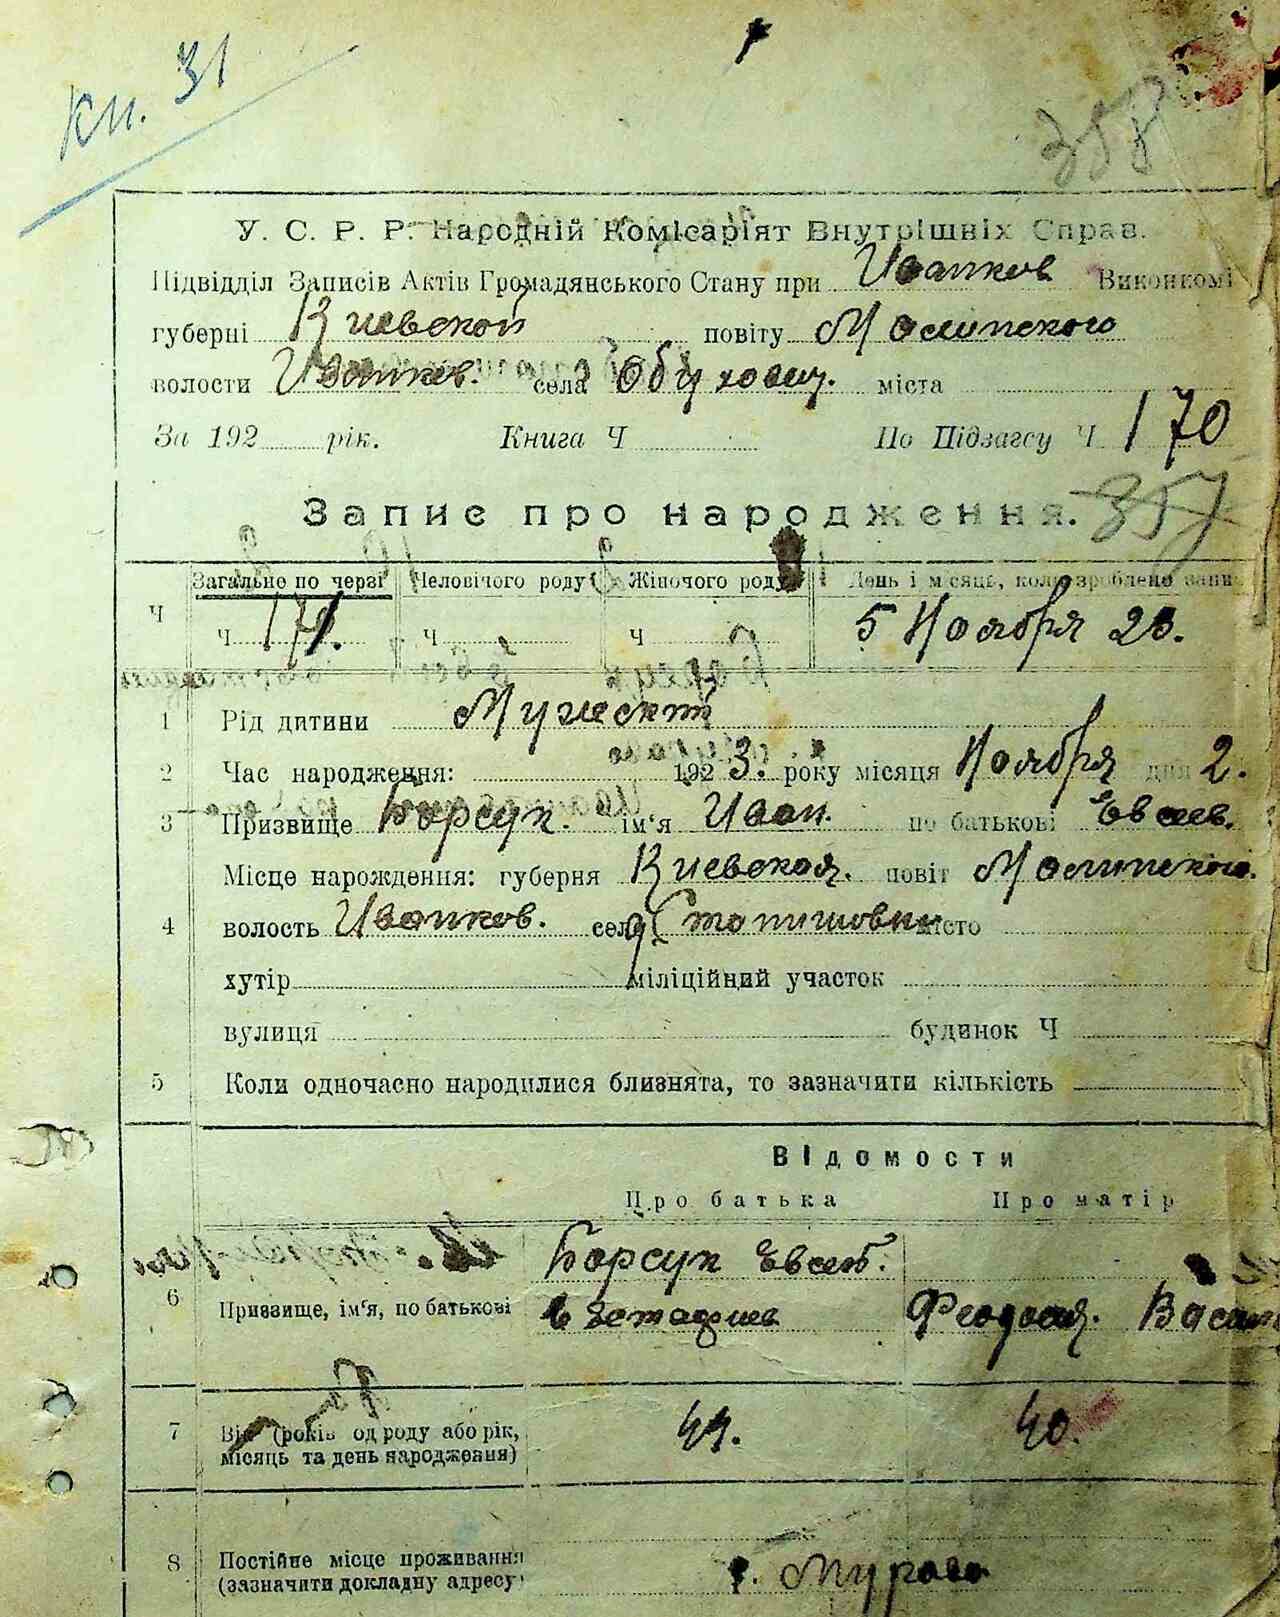 Кн. 31
358
У. С. Р. Р. Народній Комісаріят Внутрішніх Справ.
Підвідділ Записів Актів Громадянського Стану при Иванков Виконкомі
губерні Киевской повіту Малинского
волости Иванков. села Обухович. міста
За 192 рік. Книга Ч По Підзагсу Ч 170
Запис про народження. 357
Ч Загальне по черзі Человічого роду Жіночого роду День і місяць, коли зроблено запис
Ч 171. Ч Ч 5 Ноября 23.
1 Рід дитини Мужеский
2 Час народження: 1923. року місяця Ноября дня 2.
3 Призвище Борсук. ім'я Иван. по батькові Евсеев.
Місце нарождення: губерня Киевская. повіт Малинского.
4 волость Иванков. село місто
хутір міліційний участок
вулиця будинок Ч
5 Коли одночасно народилися близнята, то зазначити кількість
Відомости
Про батька Про матір
Борсук Евсей.
6 Призвище, ім'я, по батькові Евстафиев Феодосия. Васил
7 Вік (років од роду або рік, 44. 40.
місяць та день народження)
8 Постійне місце проживання
(зазначити докладну адресу)